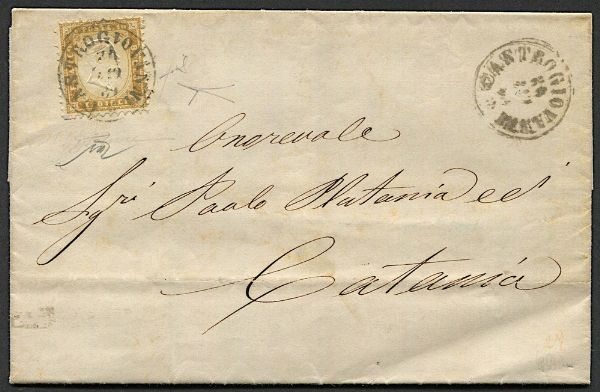 CASTROGIOVANNI
CASTROGIOVANNI
Onorevole
Sgri Paolo Platania e Ci
Catania